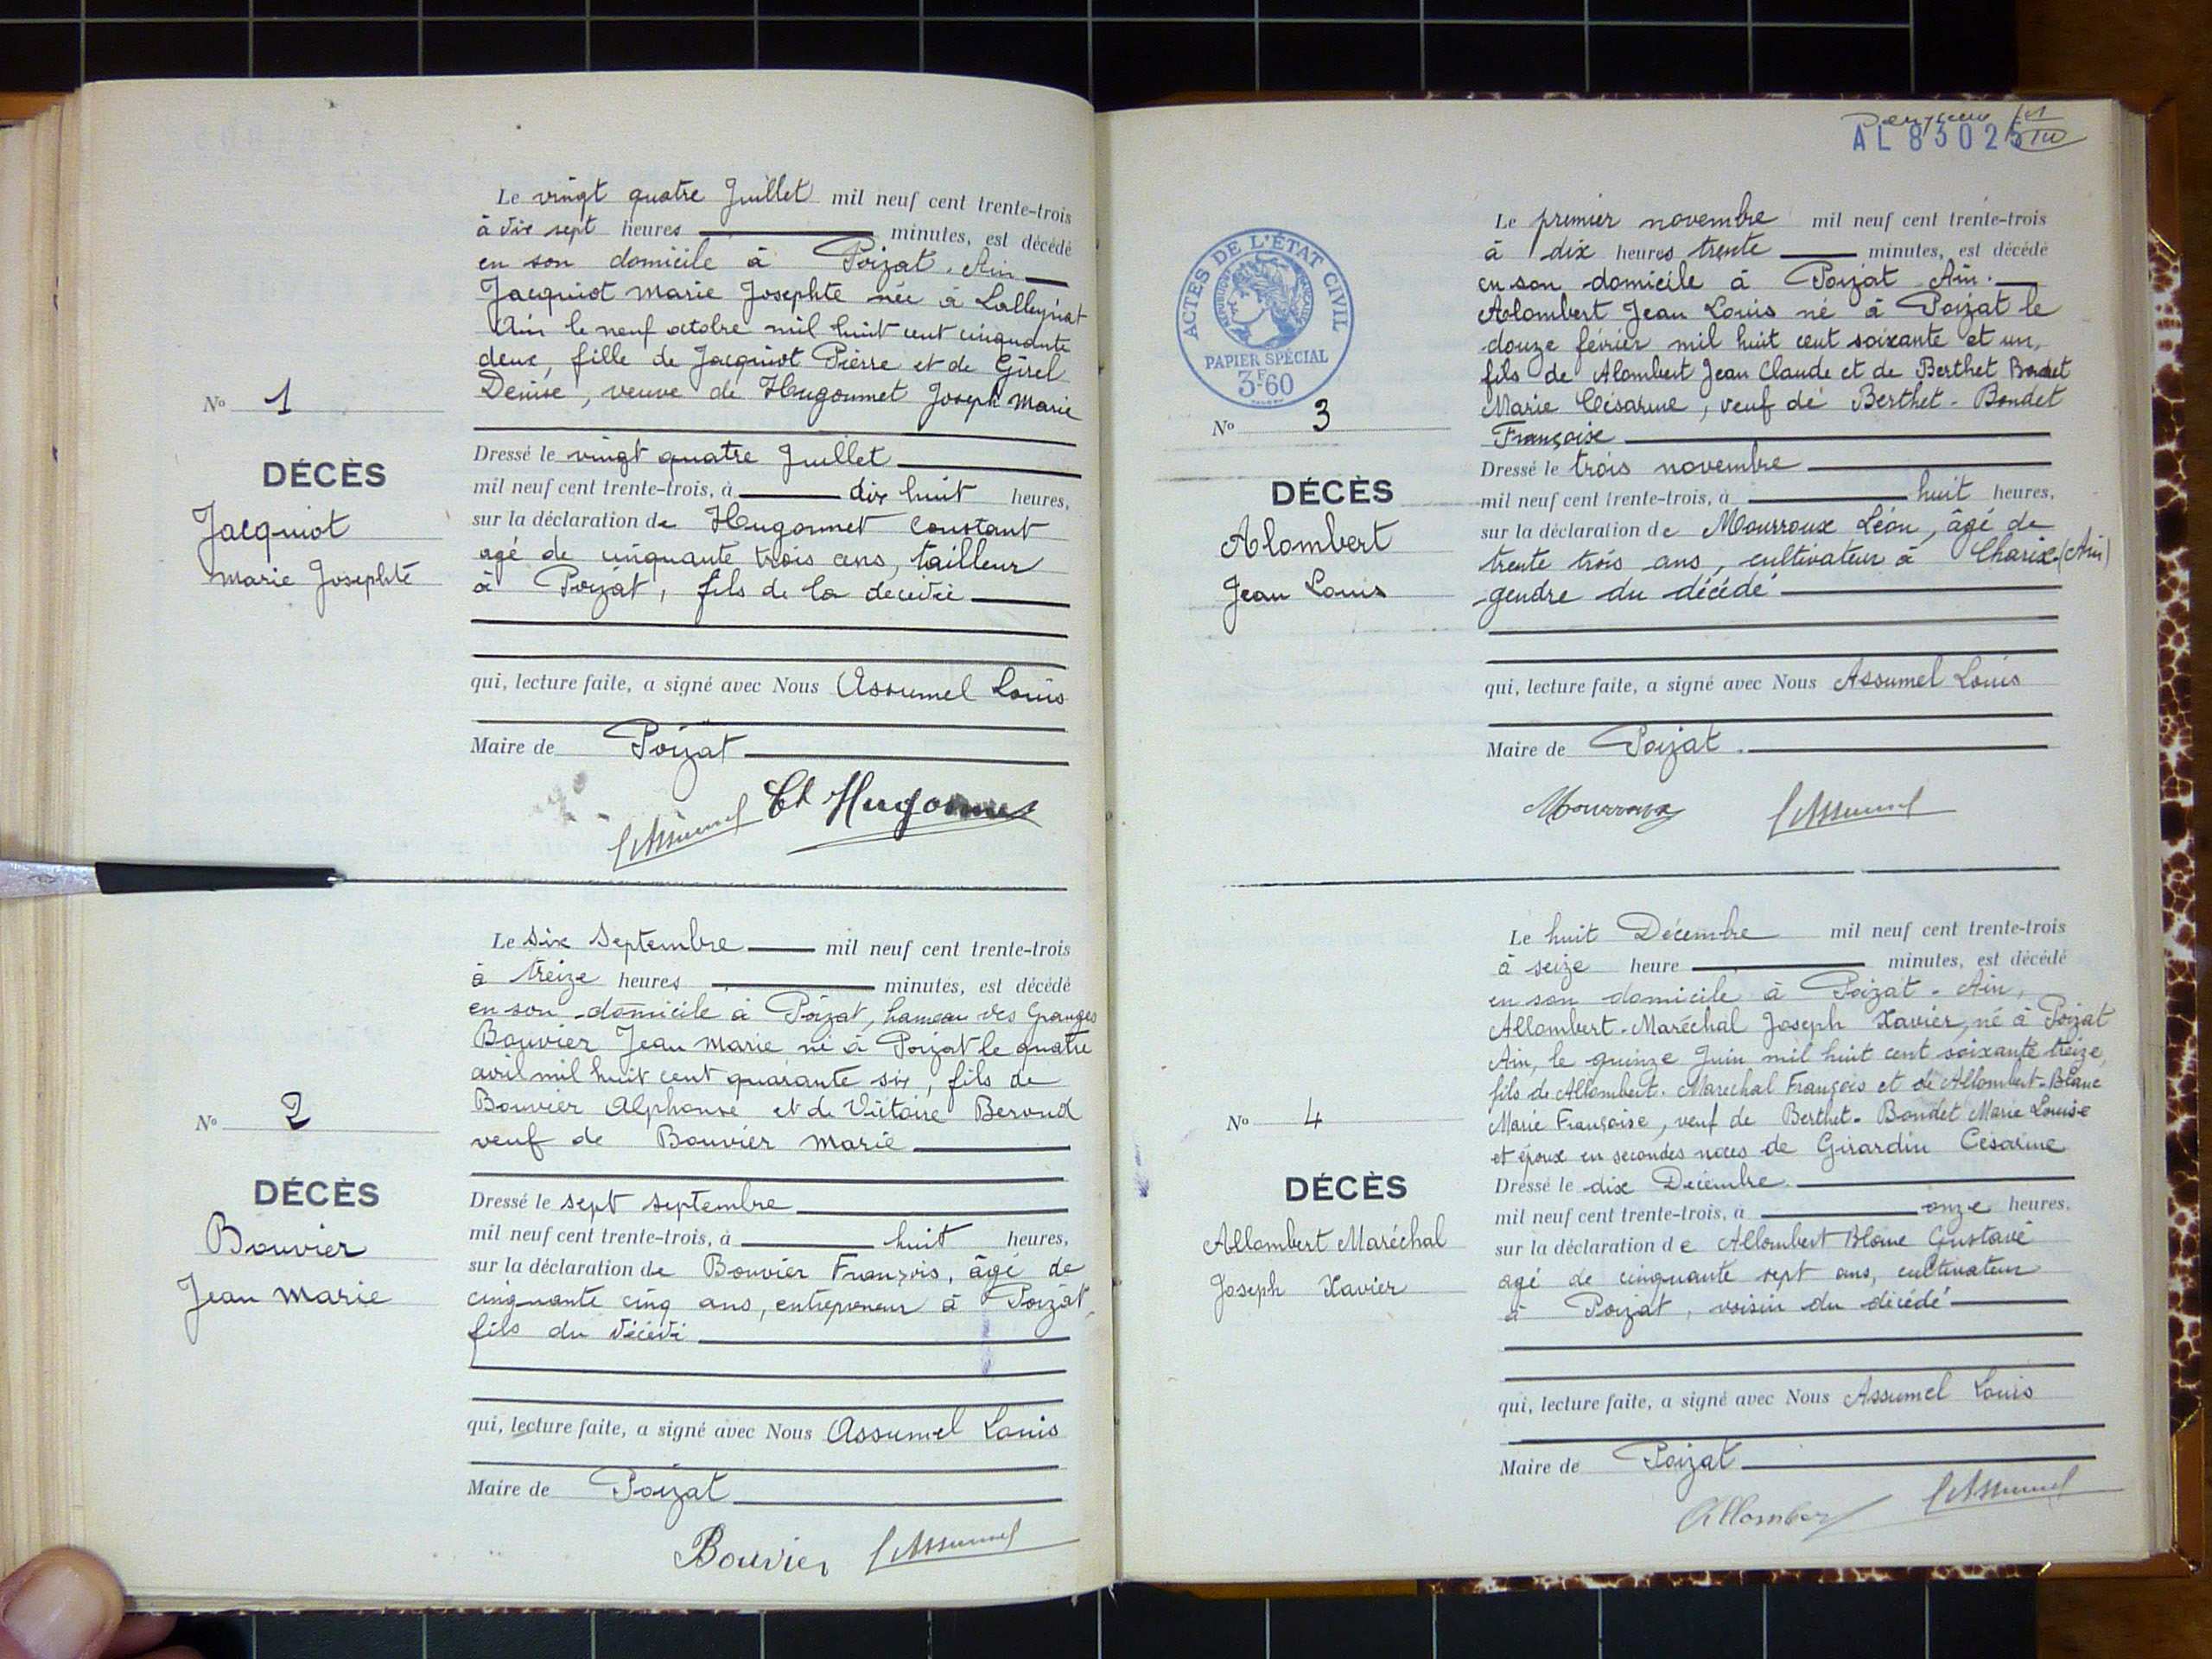 Le vingt quatre Juillet mil neuf cent trente-trois
à dix sept heures minutes, est décédé
en son domicile à Poizat. Ain
Jacquiot Marie Josephte née à Lalleyriat
Ain le neuf octobre mil huit cent cinquante
deux, fille de Jacquiot Pierre et de Girel
Denise, veuve de Hugonnet Joseph Marie
N° 1
DÉCÈS
Jacquiot
Marie Josephte
Dressé le vingt quatre Juillet
mil neuf cent trente-trois, à dix huit heures,
sur la déclaration de Hugonnet Constant
agé de cinquante trois ans, tailleur
à Poizat, fils de la décédée
qui, lecture faite, a signé avec Nous Assumel Louis
Maire de Poizat
LAssumel Ct Hugonnet
Le six Septembre mil neuf cent trente-trois
à treize heures minutes, est décédé
en son domicile à Poizat, hameau des Granges
Bouvier Jean Marie né à Poizat le quatre
avril mil huit cent quarante six, fils de
Bouvier Alphonse et de Berond
veuf de Bouvier Marie
N° 2
DÉCÈS
Bouvier
Jean Marie
Dressé le sept septembre
mil neuf cent trente-trois, à huit heures,
sur la déclaration de Bouvier François, âgé de
cinquante cinq ans, entrepreneur à Poizat,
fils du décédé
qui, lecture faite, a signé avec Nous Assumel Louis
Maire de Poizat
Bouvier LAssumel
AL 83025
ACTES DE L'ÉTAT CIVIL
RÉPUBLIQUE FRANÇAISE
PAPIER SPÉCIAL
3F60
Le premier novembre mil neuf cent trente-trois
à dix heures trente minutes, est décédé
en son domicile à Poizat Ain.
Alombert Jean Louis né à Poizat le
douze février mil huit cent soixante et un,
fils de Alombert Jean Claude et de Berthet Bondet
Marie Césarine, veuf de Berthet-Bondet
Françoise
N° 3
DÉCÈS
Alombert
Jean Louis
Dressé le trois novembre
mil neuf cent trente-trois, à huit heures,
sur la déclaration de Mourroux Léon, âgé de
trente trois ans, cultivateur à Charix (Ain)
gendre du décédé
qui, lecture faite, a signé avec Nous Assumel Louis
Maire de Poizat.
Mourroux LAssumel
Le huit Décembre mil neuf cent trente-trois
à seize heure minutes, est décédé
en son domicile à Poizat. Ain,
Allombert-Maréchal Joseph Xavier, né à Poizat
Ain, le quinze Juin mil huit cent soixante treize,
fils de Allombert-Marechal François et de Allombert-Blanc
Marie Françoise, veuf de Berthet-Bondet Marie Louise
et époux en secondes noces de Girardin Césarine
N° 4
DÉCÈS
Allombert Maréchal
Joseph Xavier
Dressé le dix Décembre
mil neuf cent trente-trois, à onze heures,
sur la déclaration de Allombert Blanc Gustave
agé de cinquante sept ans, cultivateur
à Poizat, voisin du décédé
qui, lecture faite, a signé avec Nous Assumel Louis
Maire de Poizat
Allombert LAssumel